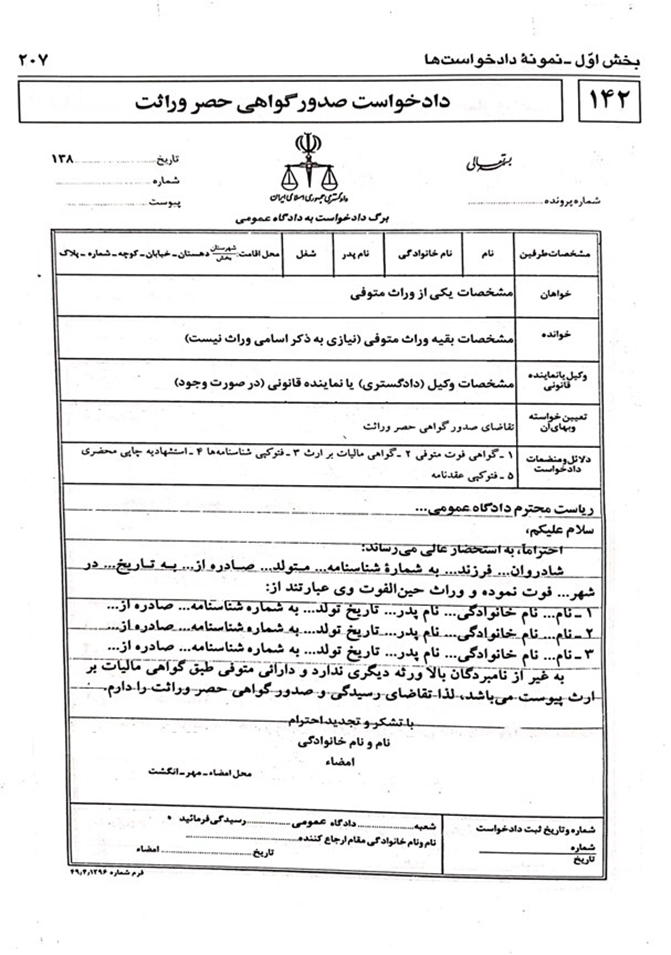 بخش اوّل ـ نمونهٔ دادخواست‌ها
۲۰۷
۱۴۲
دادخواست صدور گواهی حصر وراثت
بسمه تعالی
دادگستری جمهوری اسلامی ایران
تاریخ .......... ۱۳۸
شماره ..........
پیوست ..........
شماره پرونده ..........
برگ دادخواست به دادگاه عمومی
مشخصات طرفین
نام
نام خانوادگی
نام پدر
شغل
محل اقامت: شهرستان بخش دهستان ـ خیابان ـ کوچه ـ شماره ـ پلاک
خواهان
مشخصات یکی از وراث متوفی
خوانده
مشخصات بقیه وراث متوفی (نیازی به ذکر اسامی وراث نیست)
وکیل یا نماینده
قانونی
مشخصات وکیل (دادگستری) یا نماینده قانونی (در صورت وجود)
تعیین خواسته
وبهای آن
تقاضای صدور گواهی حصر وراثت
دلائل و منضمات
دادخواست
۱ ـ گواهی فوت متوفی ۲ ـ گواهی مالیات بر ارث ۳ ـ فتوکپی شناسنامه‌ها ۴ ـ استشهادیه چاپی محضری
۵ ـ فتوکپی عقدنامه
ریاست محترم دادگاه عمومی...
سلام علیکم،
احتراماً، به استحضار عالی می‌رساند:
شادروان... فرزند... به شمارهٔ شناسنامه... متولد... صادره از... به تاریخ... در
شهر... فوت نموده و وراث حین‌الفوت وی عبارتند از:
۱ ـ نام... نام خانوادگی... نام پدر... تاریخ تولد... به شماره شناسنامه... صادره از...
۲ ـ نام... نام خانوادگی... نام پدر... تاریخ تولد... به شماره شناسنامه... صادره از...
۳ ـ نام... نام خانوادگی... نام پدر... تاریخ تولد... به شماره شناسنامه... صادره از...
به غیر از نامبردگان بالا ورثه دیگری ندارد و دارائی متوفی طبق گواهی مالیات بر
ارث پیوست می‌باشد، لذا تقاضای رسیدگی و صدور گواهی حصر وراثت را دارم.
با تشکر و تجدید احترام
نام و نام خانوادگی
امضاء
محل امضاء ـ مهر ـ انگشت
شماره و تاریخ ثبت دادخواست
شماره
تاریخ
شعبه .......... دادگاه عمومی .......... رسیدگی فرمائید
نام و نام خانوادگی مقام ارجاع کننده ..........
تاریخ .......... امضاء
فرم شماره ۴۹٫۴٫۱۲۹۶